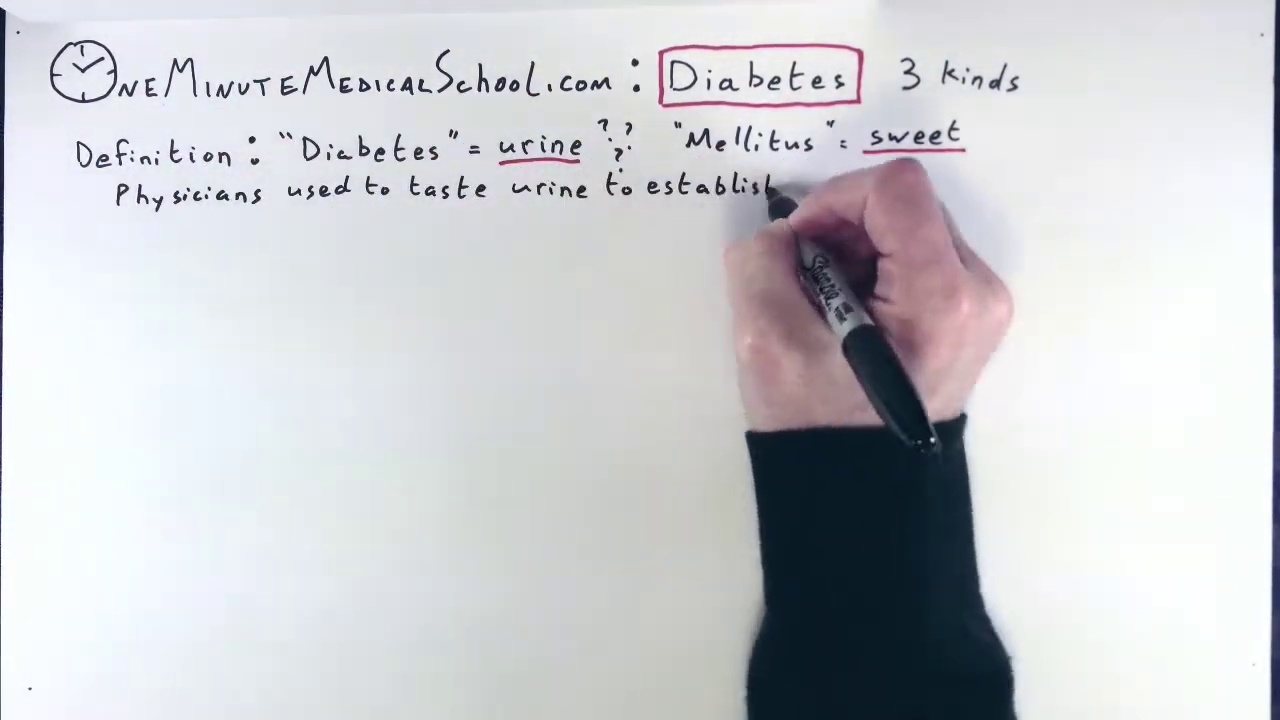 OneMinuteMedicalSchool.com : Diabetes 3 kinds
Definition : "Diabetes" = urine ? ? ? "Mellitus" = sweet
Physicians used to taste urine to establish
Sharpie